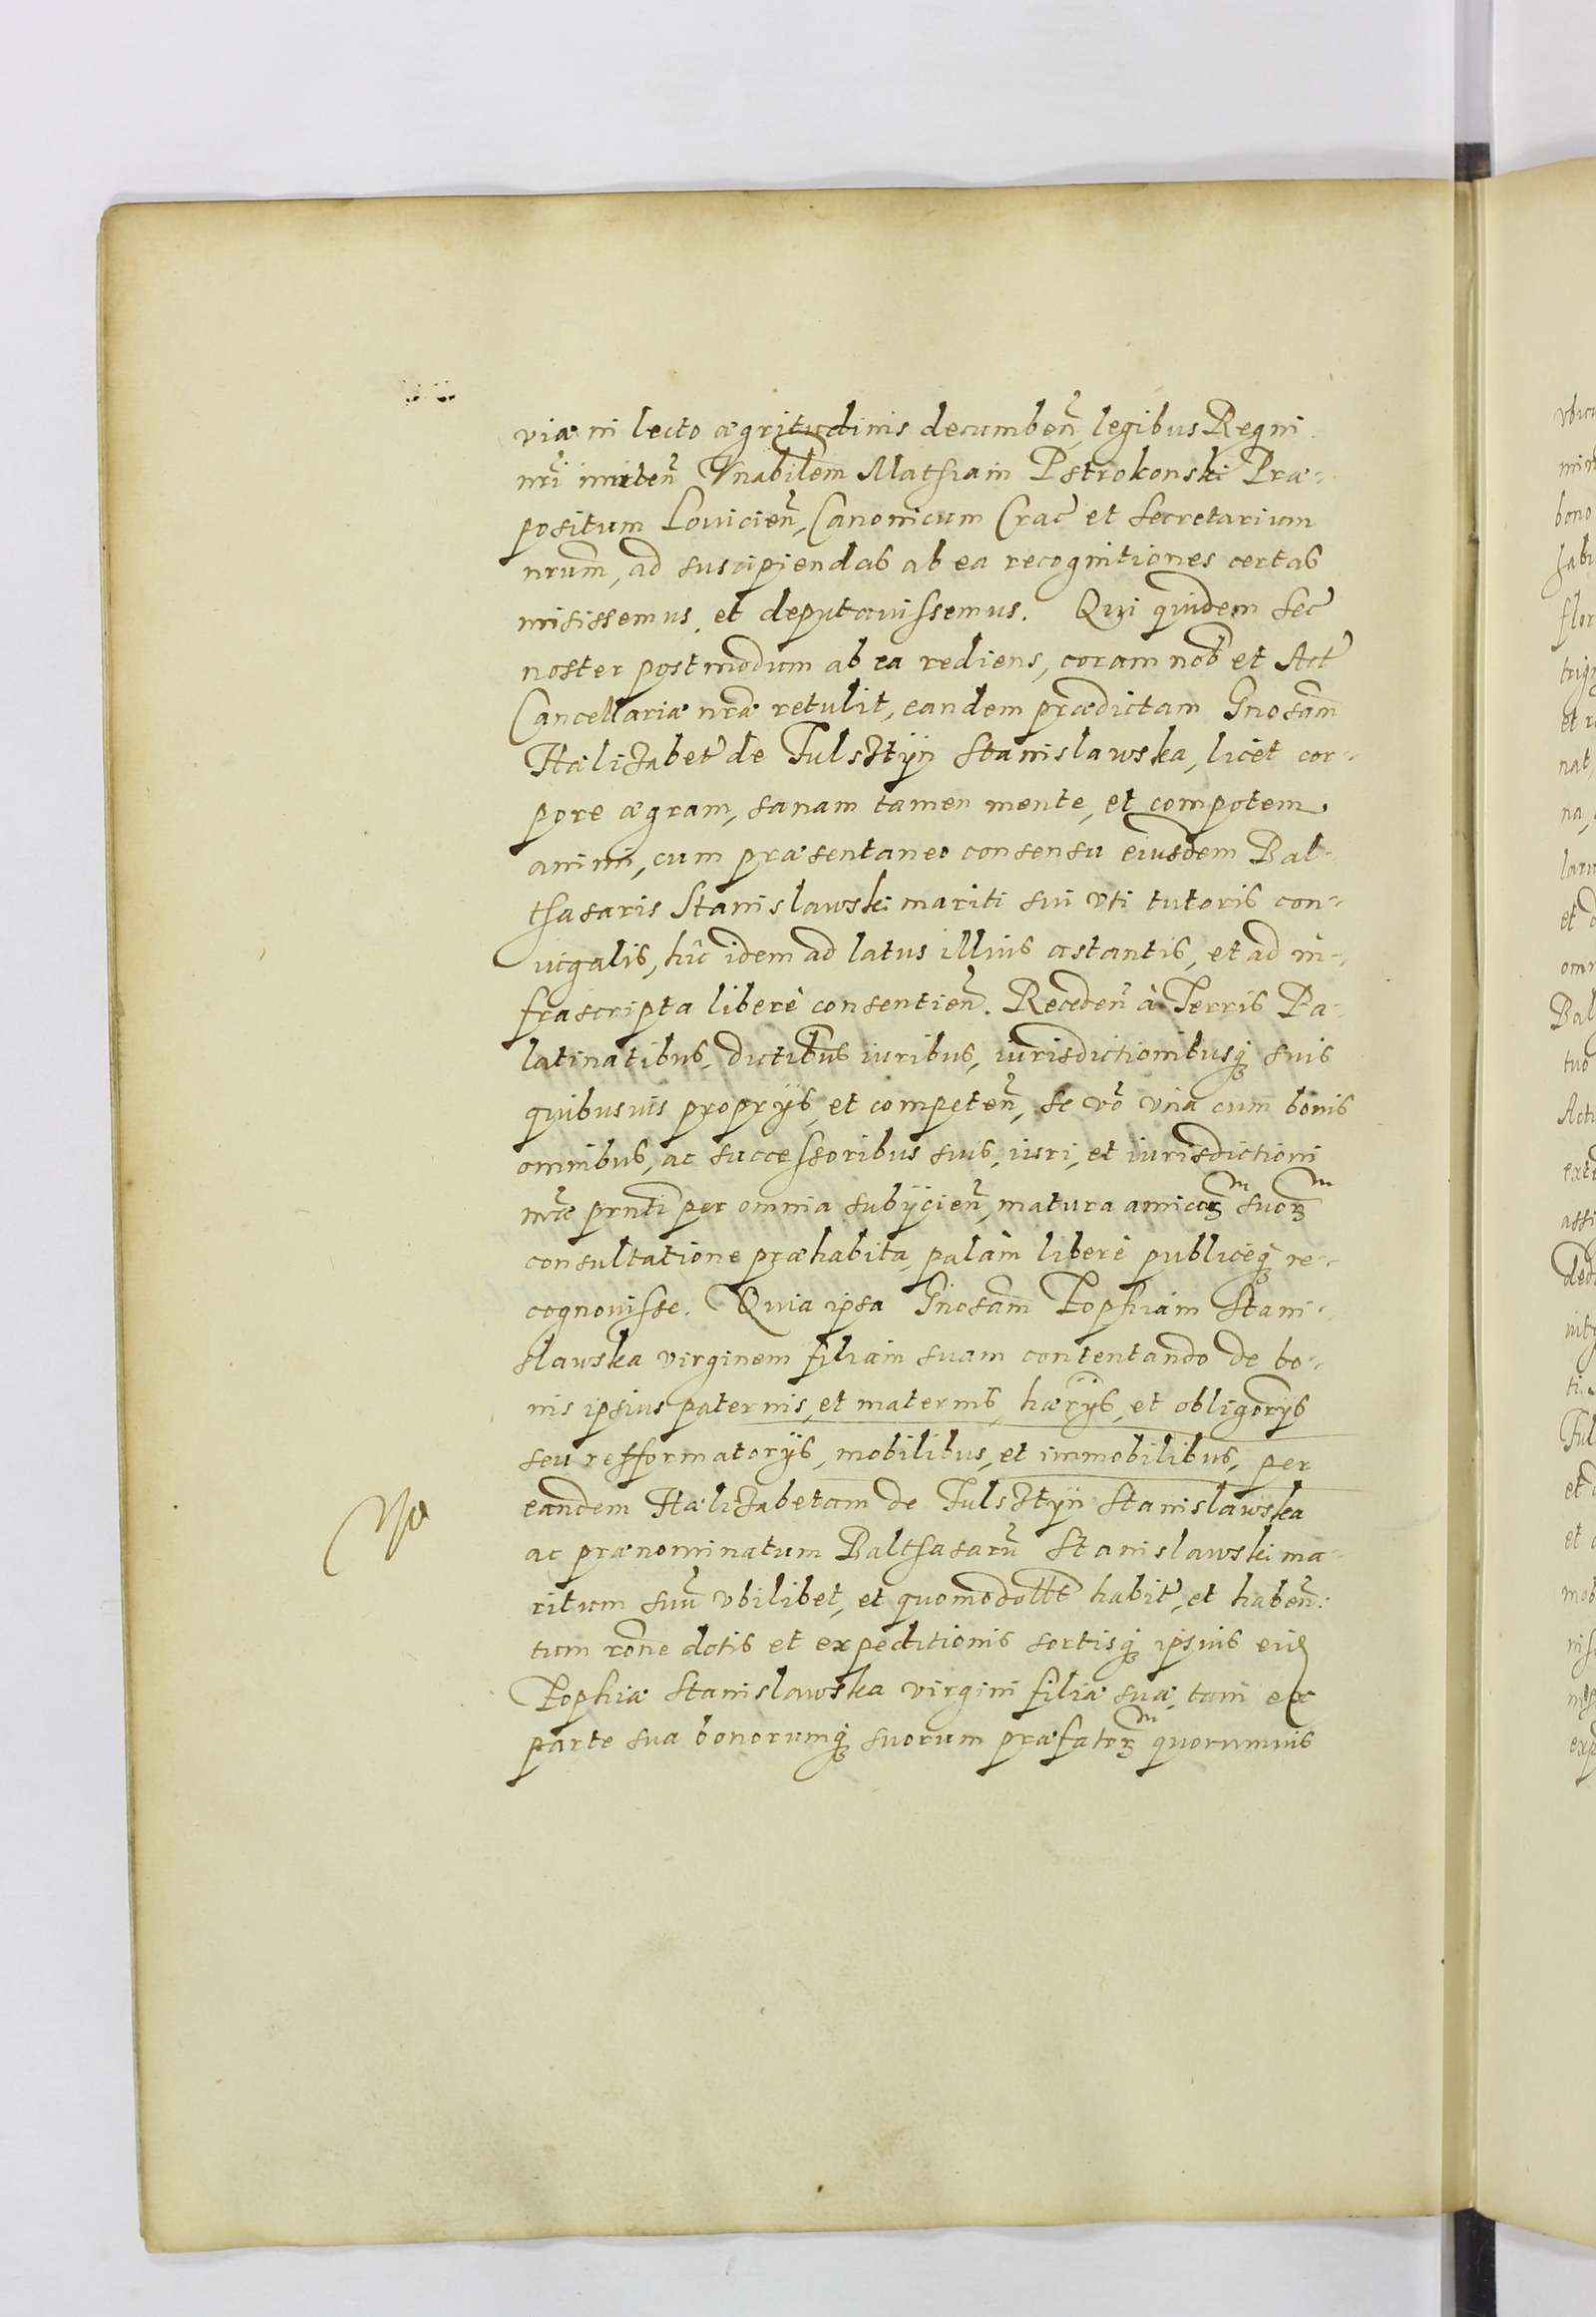 viæ in lecto ægritudinis decumbeñ, legibus Regni
nr̃i inniteñ Vnabilem Mathiam Pstrokonski Præ-
positum Louicieñ, Canonicum Crac̃ et Secretarium
nrum̃, ad suscipiendas ab ea recognitiones certas
misissemus, et deputauissemus. Qui quidem Sec̃
noster postmodum ab ea rediens, coram nob̃ et Act̃
Cancellariæ nræ̃ retulit, eandem prædictam Gnosam̃
Hælizabet̃ de Fulsztÿn Stanislawska, licèt cor-
pore ægram, sanam tamen mente, et compotem
animi, cum præsentaneo consensu eiusdem Bal-
thasaris Stanislawski mariti sui vti tutoris con-
iugalis, hîc idem ad latus illius astantis, et ad in-
frascripta liberè consentieñ. Recedeñ à Terris Pa-
latinatibus, dictibus iuribus, iurisdictionibusq3 suis
quibusuis proprÿs, et competeñ, se võ vnà cum bonis
omnibus, ac successoribus suis, iuri, et iurisdictioni
nræ̃ prnti̇̃ per omnia subÿcieñ, matura amicorᷓ suorᷓ
consultatione præhabita, palàm liberè publicèq3 re-
cognouisse. Quia ipsa Gnosam̃ Zophiam Stani-
slawska virginem filiam suam contentando de bo-
nis ipsius paternis, et maternis, hærÿs, et obligorÿs
seu refformatorÿs, mobilibus, et immobilibus, per
eandem Hælizabetam de Fulsztÿn Stanislawska
ac prænominatum Balthasarũ Stanislawski ma-
ritum suũ vbilibet, et quomodolt̃t habit̃, et habeñ:
tum rõne dotis et expeditionis sortisq3 ipsius eiꝰ
Zophiæ Stanislawska virgini filiæ suæ, tam ex
parte sua bonorumq3 suorum præfatorᷓ quorumuis